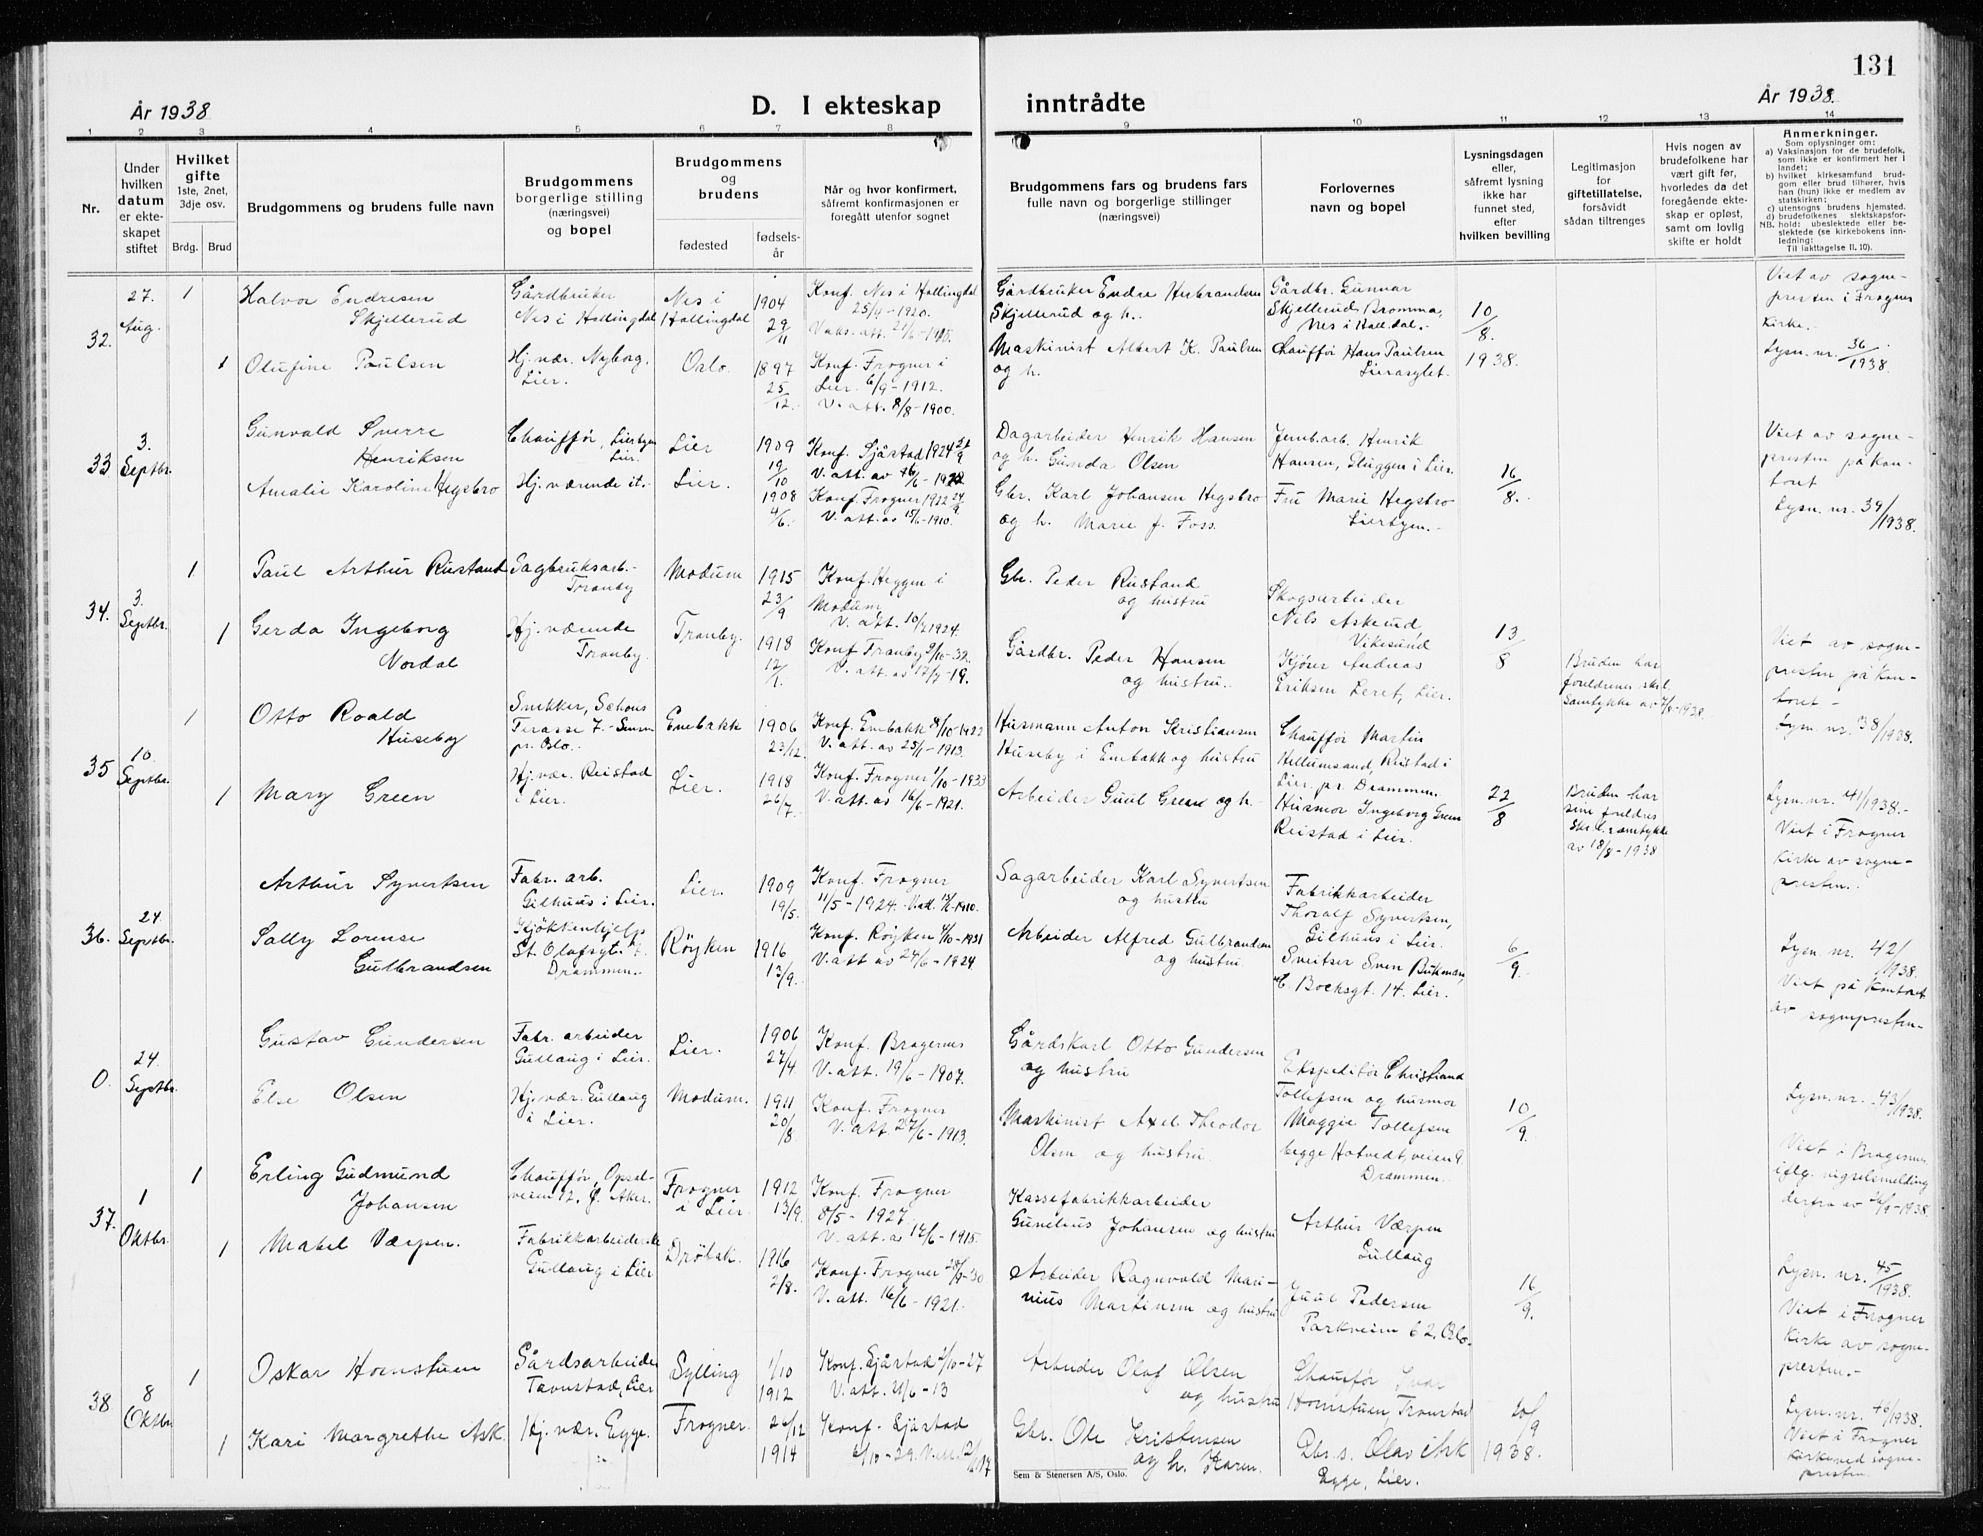 131
År 1938
D. I ekteskap
inntrådte
År 1938.
1 2 3 4 5 6 7 8 9 10 11 12 13 14
Nr.
Under
hvilken
datum
er ekte-
skapet
stiftet
Hvilket
gifte
1ste, 2net,
3dje osv.
Brdg. Brud
Brudgommens og brudens fulle navn
Brudgommens
borgerlige stilling
(næringsvei)
og bopel
Brudgommens
og
brudens
fødested
fødsels-
år
Når og hvor konfirmert,
såfremt konfirmasjonen er
foregått utenfor sognet
Brudgommens fars og brudens fars
fulle navn og borgerlige stillinger
(næringsvei)
Forlovernes
navn og bopel
Lysningsdagen
eller,
såfremt lysning
ikke har
funnet sted,
efter
hvilken bevilling
Legitimasjon
for
giftetillatelse,
forsåvidt
sådan tiltrenges
Hvis nogen av
brudefolkene har
vært gift før,
hvorledes da det
foregående ekte-
skap er opløst,
samt om lovlig
skifte er holdt
Anmerkninger.
Som oplysninger om:
a) Vaksinasjon for de brudefolk,
som ikke er konfirmert her i
landet;
b) hvilket kirkesamfund brud-
gom eller brud tilhører, hvis
han (hun) ikke er medlem av
statskirken;
c) utensogns brudens hjemsted.
d) brudefolkenes slektskapsfor-
NB. hold: ubeslektede eller be-
slektede (se kirkebokens inn-
ledning:
Til iakttagelse II. 10).
32.
27.
Aug.
1
Halvor Endresen
Skjellerud
Gårdbruker
Nes i Hallingdal
Nes i
Hallingdal
1904
29/11
Konf. Nes i Hallingdal
25/4-1920.
Gårdbruker Endre Herbrandsen
Skjellerud og h.
Gårdbr. Gunnar
Skjellerud, Bromma,
Nes i Hall.dal.
10/8.
1938.
Viet av sogne-
presten i Frogner
Kirke.
Lysn. nr. 36/1938.
1
Olufine Paulsen
Hj. vær. Nyborg.
Lier.
Oslo.
1897
25/12.
Konf. Frogner i
Lier. 6/9-1912.
V. att. 8/8-1900.
Maskinist Albert K. Paulsen
og h.
Chauffør Hans Paulsen
Lierasylet.
33
3.
Septbr.
Gunvald Sverre
Henriksen
Chauffør, Lierbyen
Lier.
Lier
1909
19/10
Konf. Sjåstad 1924
Dagarbeider Henrik Hansen
og h. Gunda Olsen
Jernb.arb. Henrik
Hansen, Sluggen i Lier.
16/8.
Viet av sogne-
presten på kon-
toret
Lysn. nr. 39/1938.
Amalie Karoline Hegsbro
Hj. værende it.
Lier.
1908
4/6.
Konf. Frogner 1922 24/9
V. att. av 15/6-1910.
Gbr. Karl Johansen Hegsbro
og h. Marie f. Foss.
Fru Marie Hegsbro
Lierbyen.
34.
3.
Septbr.
1
Paul Arthur Rustand
Sagbruksarb.
Tranby
Modum
1915
23/9
Konf. Heggen i
Modum
V. att. 10/2 1924.
Gbr. Peder Rustand
og hustru
Skogsarbeider
Nils Askerud
Vikesund
13/8
1
Gerda Ingeborg
Nordal
Hj. værende
Tranby.
Tranby.
1918
12/1.
Konf. Tranby 9/10-32.
V. att. av 17/7-19.
Gårdbr. Peder Hansen
og hustru.
Kjører Andreas
Eriksen Leret, Lier.
Bruden har
foreldrenes skrl.
Samtykke av 7/8-1938.
Viet av sogne-
presten på kon-
toret -
Lysn. nr. 38/1938.
35
10.
Septbr.
1
Otto Roald
Huseby
Snekker, Schous
Terasse 7.
pr. Oslo.
Enebakk
1906
23/12.
Konf. Enebakk 8/10-1922
V. att. av 25/1-1913.
Husmann Anton Kristiansen
Huseby i Enebakk og hustru
Chauffør Martin
Hellumsand, Reistad i
Lier pr. Drammen.
1
Mary Green
Hj. vær. Reistad
i Lier.
Lier.
1918
26/7.
Konf. Frogner 1/10-1933
V. att. av 16/6-1921.
Arbeider Guul Green og h.
Husmor Ingeborg Green
Reistad i Lier.
22/8
Bruden har
sine foreldres
skr.l. samtykke
av 18/8-1938
Lysn. nr. 41/1938.
Viet i Frogner
Kirke av sogne-
presten.
36.
24.
Septbr.
Arthur Syvertsen
Fabr. arb.
Gilhuus i Lier.
Lier.
1909
19/5.
Konf. Frogner
11/5-1924.
Sagarbeider Karl Syvertsen
og hustru
Fabrikkarbeider
Thoralf Syvertsen,
Gilhuus i Lier.
6/9.
Sally Lorense
Gulbrandsen
Kjøkkenhjelp
St. Olafsgt.
Drammen.
Røyken
1916
13/9.
Konf. Røyken 4/10-1931
V. att av 24/6-1924.
Arbeider Alfred Gulbrandsen
og hustru
Sveitser Sven Bukman,
C. Bocksgt. 14. Lier.
Lysn. nr. 42/1938.
Viet på Kontoret
av sognepresten.
0.
24.
Septbr.
Gustav Gundersen
Fabr. arbeider
Gullaug i Lier.
Lier.
1906
27/4
Konf. Bragernes
V. att. 19/6-1907.
Gårdskarl Otto Gundersen
og hustru
Ekspeditør Christiand
Tollefsen og husmor
Maggie Tollefsen
begge Hotvedtveien 9.
Drammen.
10/9.
Else Olsen
Hj. vær. Gullaug
i Lier.
Modum.
1911
20/8
Konf. Frogner
V. att. 27/6-1913.
Maskinist Axel Theodor
Olsen og hustru
Lysn. nr. 43/1938.
Viet i Bragernes
iflg. vigselsmelding
derfra av 26/9-1938.
37.
1
Oktbr.
1
Erling Gudmund
Johansen
Chauffør, Opsal-
veien 12. Ø. Aker.
Frogner
i Lier
1912
13/9.
Konf. Frogner
8/5-1927
V. att. av 14/6-1915.
Kassefabrikkarbeider
Gunelius Johansen og hustru
Arthur Værpen
Gullaug
1
Mabel Værpen.
Fabrikkarbeiderske
Gullaug i Lier
Drøbak.
1916
2/8.
Konf. Frogner 28/9-30
V. att. 16/6-1921.
Arbeider Ragnvald Mari-
nius Martinsen og hustru
Juul Pedersen
Parkveien 62. Oslo.
16/9.
Lysn. nr. 45/1938.
Viet i Frogner
Kirke av sogne-
presten.
38
8
Oktbr.
1
Oskar Hornstuen
Gårdsarbeider
Tronstad, Lier
Sylling
1/10
1912
Konf. Sjåstad 2/10-27
V. att. 21/6-13
Arbeider Olaf Olsen
og hustru
Chauffør Ivar
Hornstuen, Tronstad
20/9
1938.
1
Kari Margrethe Ask.
Hj. vær. Egge.
Frogner.
26/12
1914
Konf. Sjåstad
6/10-29.
Gbr. Ole Kristensen
og h. Karen.
Gbr.s. Olav Ask
Egge, Lier.
Lysn. nr. 46/1938.
Viet i Frogner
Kirke ved sogne-
presten.
Sem & Stenersen A/S, Oslo.